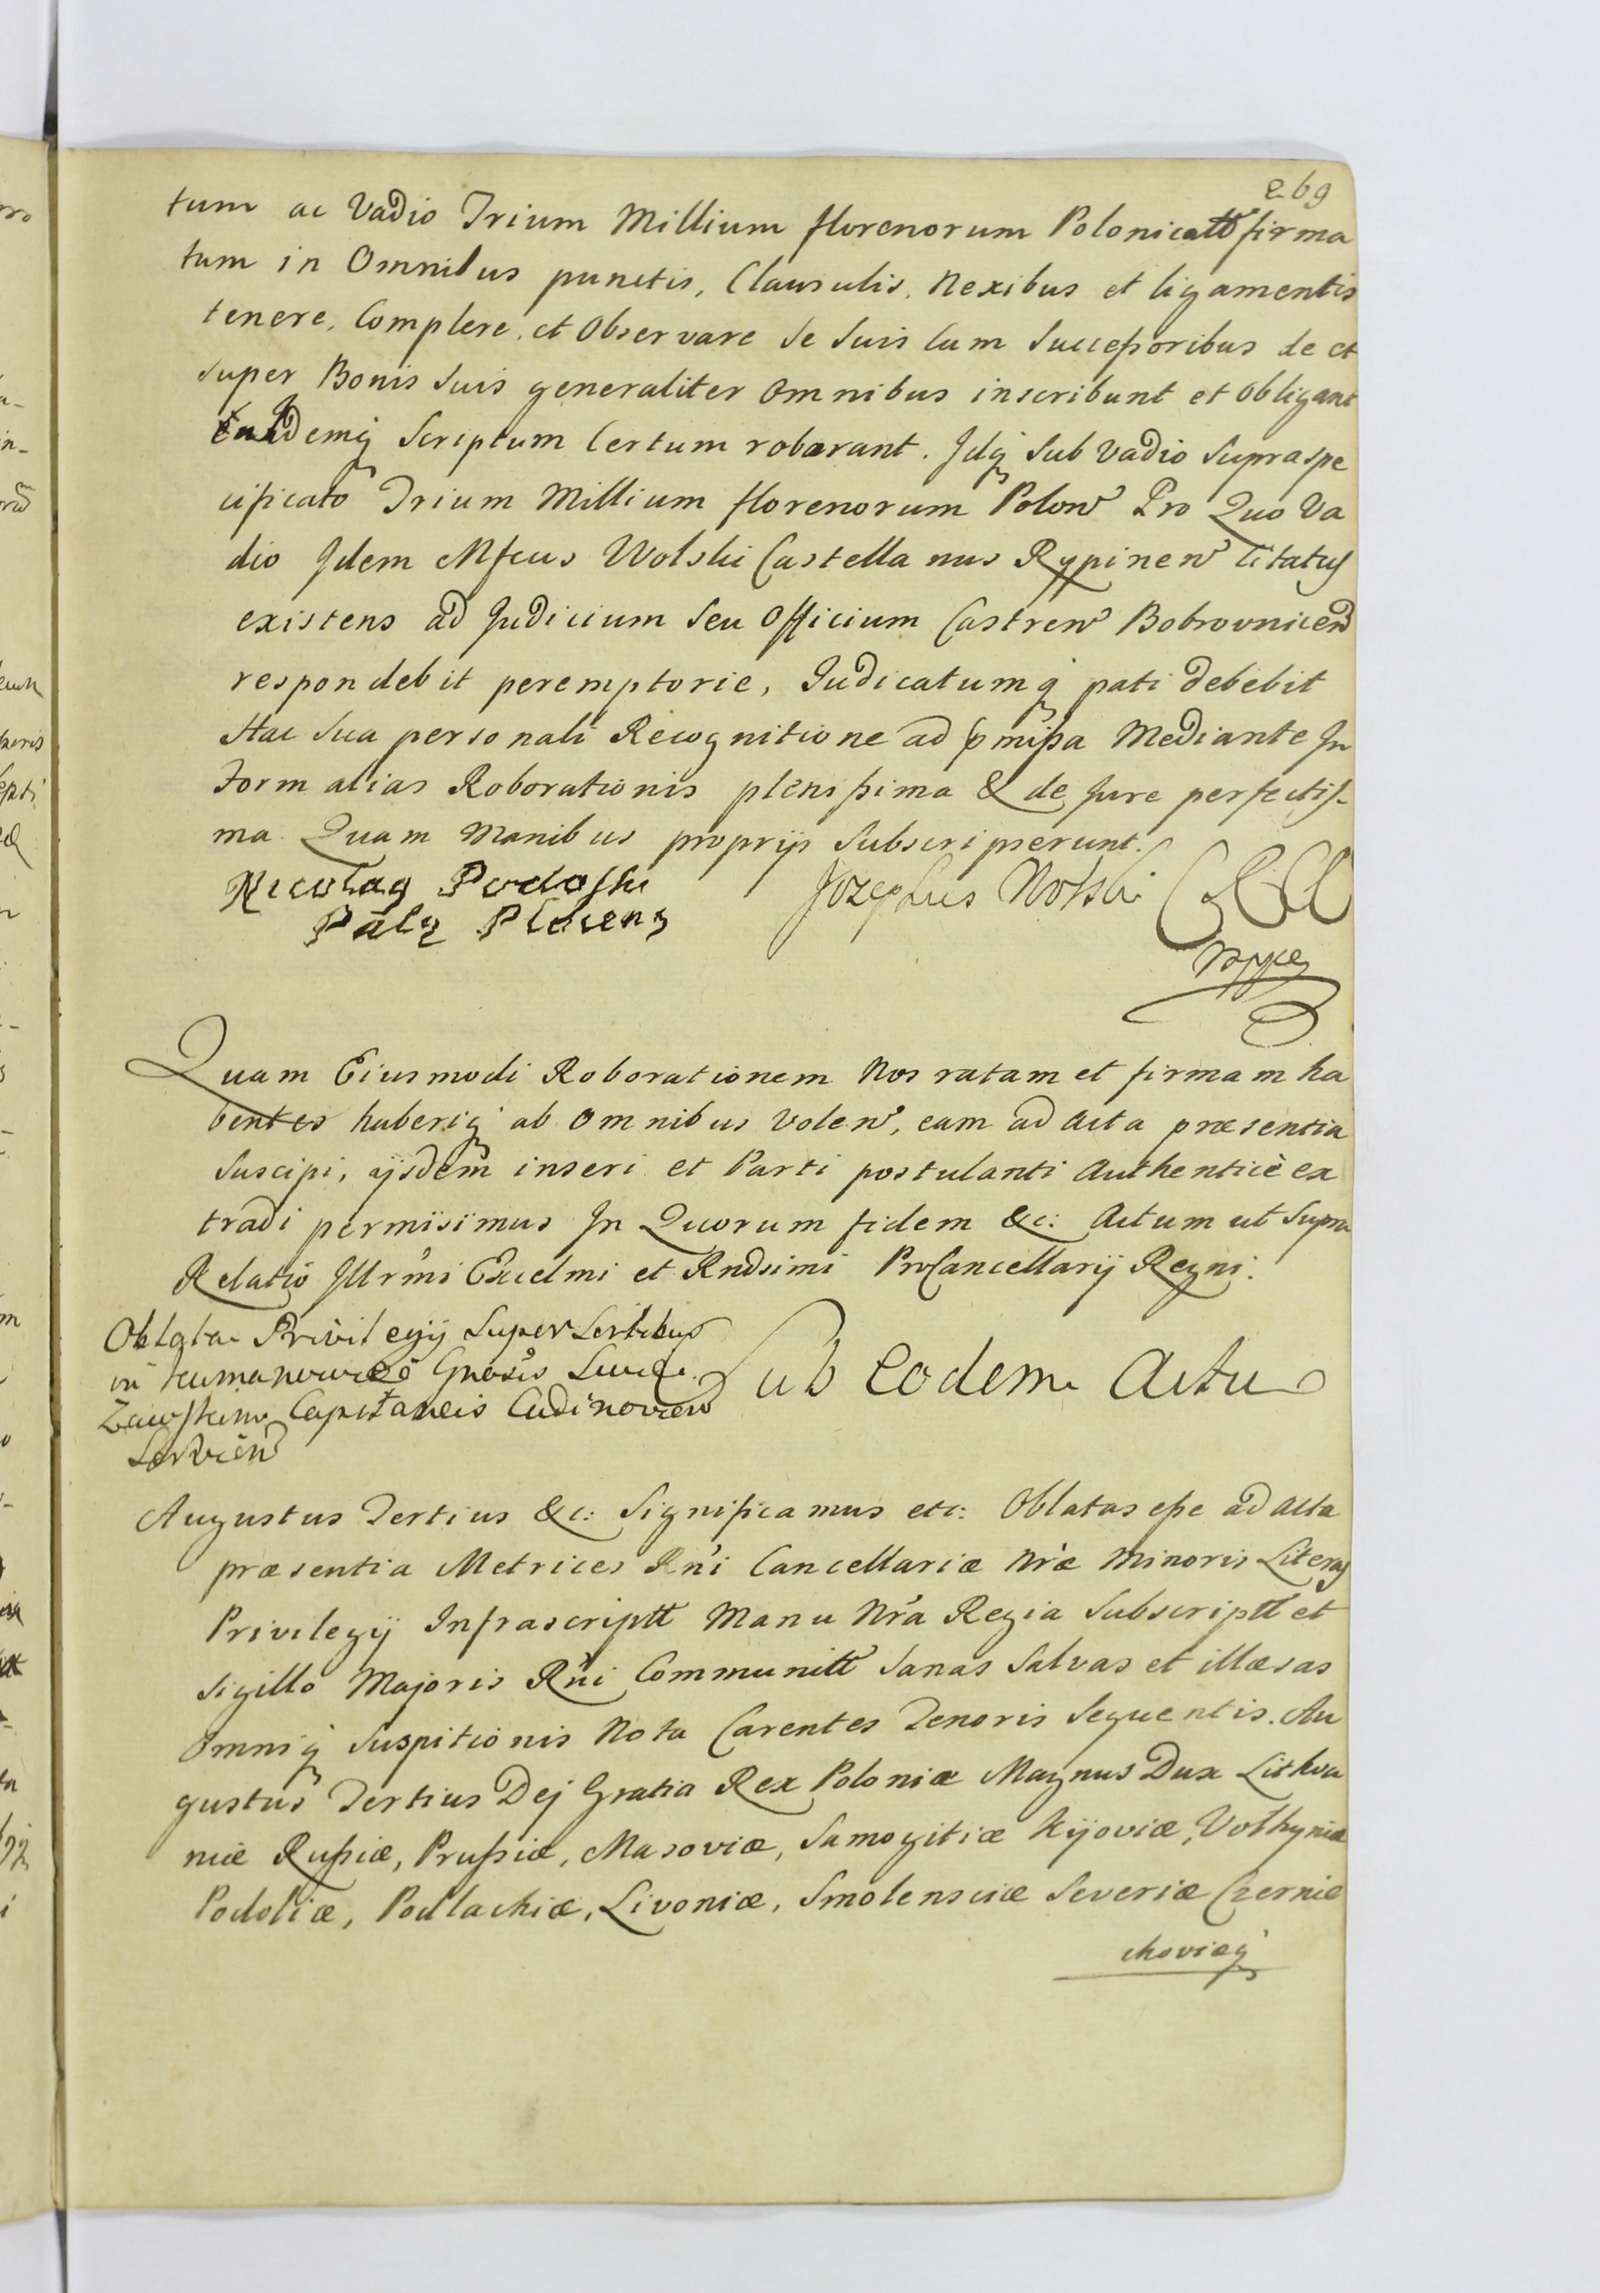 269
tum ac Vadio Trium Millium florenorum Polonicatt firma
tum in Omnibus punctis, Clausulis, Nexibus et ligamentis
tenere, Complere, et Observare se Suis Cum Successoribus de et
super Bonis Suis generaliter Omnibus inscribunt et Obligant
demq Scriptum Certum roborant. Idq Sub Vadio Supraspe
cificato Trium Millium florenorum Polon Pro Quo Va
dio Idem Mfcus Wolski Castellanus Rypinen Citatus
existens ad Judicium Seu Officium Castren Bobrovnicen
respondebit peremptorie, Judicatumq pati debebit
Hac Sua personali Recognitione ad pmissa Mediante In
Form alias Roborationis plenissima & de Jure perfectis-
ma Quam Manibus proprijs Subscripserunt.
Nicolas Podoski
Josephus Wolski C R
Palq Plocens
mppe
Quam Eiusmodi Roborationem Nos ratam et firmam ha
bentes haberiq ab Omnibus Volen, eam ad Acta præsentia
Suscipi, ijsdem inseri et Parti postulanti Authenticè ex
tradi permisimus In Quorum fidem &c: Actum ut Supra
Relatio Illrmi Excelmi et Rndsimi ProCancellarij Regni.
Oblata Privilegij Super Sortibus
in Gnosis
Capitaneis Cudinovien
Servien
Sub Eodem Actu
Augustus Tertius &c: Significamus etc: Oblatas esse ad Acta
præsentia Metrices Rni Cancellariæ Nræ Minoris Literas
Privilegij Infrascriptt Manu Nra Regia Subscriptt et
Sigillo Majoris Rni Communitt Sanas Salvas et illæsas
Omniq Suspitionis Nota Carentes Tenoris Sequentis. Au
gustus Tertius Dej Gratia Rex Poloniæ Magnus Dux Lithva
niæ Russiæ, Prussiæ, Masoviæ, Samogitiæ Kijoviæ, Volhyniæ
Podoliæ, Podlachiæ, Livoniæ, Smolensciæ Severiæ Czernie
choviæq